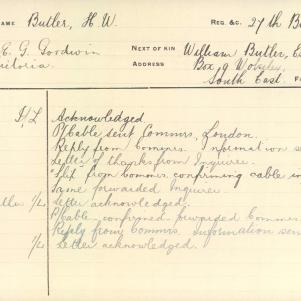 NAME Butler, H. W. REG. &C. 27th B
E. G. Goodwin NEXT OF KIN William Butler, E
ictoria. ADDRESS Box 9
South East F
Acknowledged
P/Cable sent Commrs, London.
Reply from Commrs. Information s
Letter of thanks from Inquirer.
Slip from Commrs. confirming cable in
Same forwarded Inquirer
tler Letter acknowledged.
P/Cable confirmed. forwarded Commrs
Reply from Commrs. Information sen
Letter acknowledged.